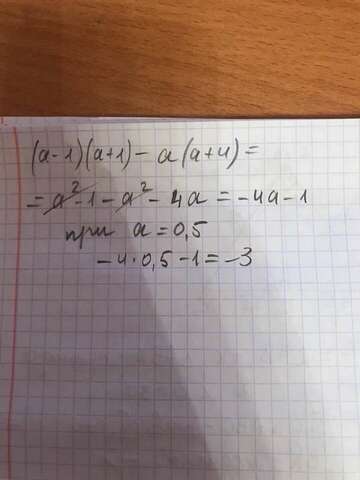 (a-1)(a+1) - a(a+4) =
= a² - 1 - a² - 4a = -4a - 1
при a = 0,5
-4·0,5 - 1 = -3